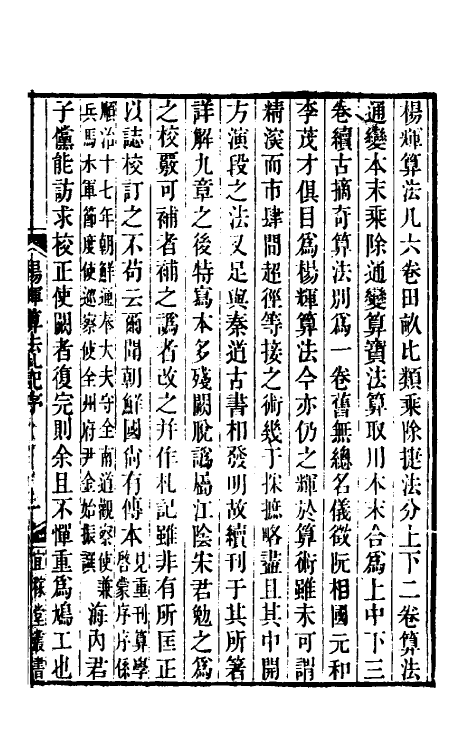 楊輝算法凡六卷田畝比類乘除捷法分上下二卷算法
通變本末乘除通變算寶法算取用本末合爲上中下三
卷續古摘奇算法別爲一卷舊無總名儀徵阮相國元和
李茂才俱目爲楊輝算法今亦仍之輝於算術雖未可謂
精深而市肆間超徑等接之術幾于採摭略盡且其中開
方演段之法又足與秦道古書相發明故續刊于其所著
詳解九章之後特寫本多殘闕脫譌屬江陰宋君勉之爲
之校覈可補者補之譌者改之并作札記雖非有所匡正
以誌校訂之不苟云爾聞朝鮮國尙有傳本見重刊算學啓蒙序序係
順治十七年朝鮮通奉大夫守全南道觀察使兼
兵馬水軍節度使巡察使全州府尹金始振譔
海內君
子儻能訪求校正使闕者復完則余且不憚重爲鳩工也
楊輝算法札記序
宜稼堂叢書